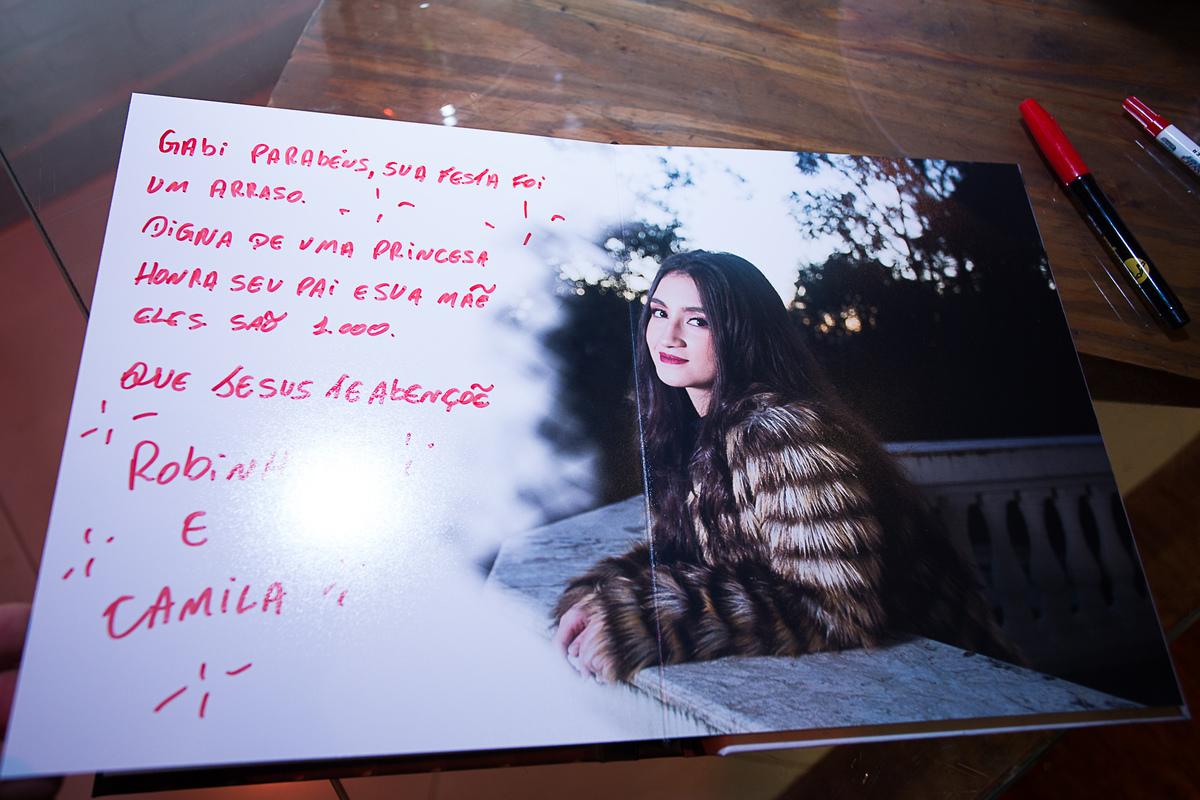 GAbi PARAbéNS, SUA FESTA FOi
UM ARRASO.
DIGNA DE UMA PRINCESA
HONRA SEU PAI E SUA MÃE
ELES SÃO 1.000.
QUE JESUS TE AbENÇOE
E
CAMILA